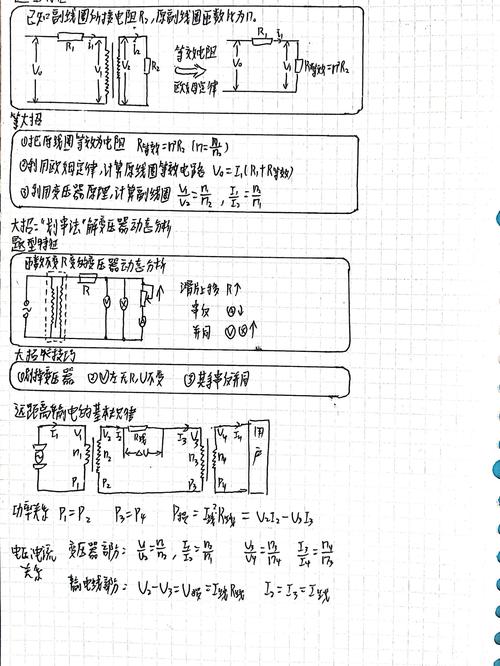 已知副线圈外接电阻R₂,原副线圈匝数比为n。
R₁ I₁ I₂ V₀ V₁ V₂ R₂
等效电阻
欧姆定律
R₁ I₁ V₀ V₁ R等效=n²R₂
等大招
①把原线圈等效为电阻 R等效=n²R₂ (n=n₁/n₂)
②利用欧姆定律,计算原线圈等效电路 V₀=I₁(R₁+R等效)
③利用变压器原理,计算副线圈 V₁/V₂=n₁/n₂, I₁/I₂=n₂/n₁
大招:"割牢法"解变压器动态分析
题型特征
匝数不变R变的变压器动态分析
R V V R A
滑片上移 R↑
串反 Ⓐ↓
并同 ⓋⓋ↑
大招解技巧
①割掉变压器 ②Ⓥ左无R,U不变 ③其于串反并同
远距离输电的基本规律
I₁ V₁ n₁ P₁ V₂ I₂ n₂ P₂ R线 ΔU I₃ V₃ n₃ P₃ V₄ I₄ n₄ P₄ 用户
功率关系 P₁=P₂ P₃=P₄ P损=I线²R线=V₂I₂-V₃I₃
电压电流关系 变压器部分: V₁/V₂=n₁/n₂, I₁/I₂=n₂/n₁ V₃/V₄=n₃/n₄ I₃/I₄=n₄/n₃
输电线部分: V₂-V₃=V损=I线R线 I₂=I₃=I线